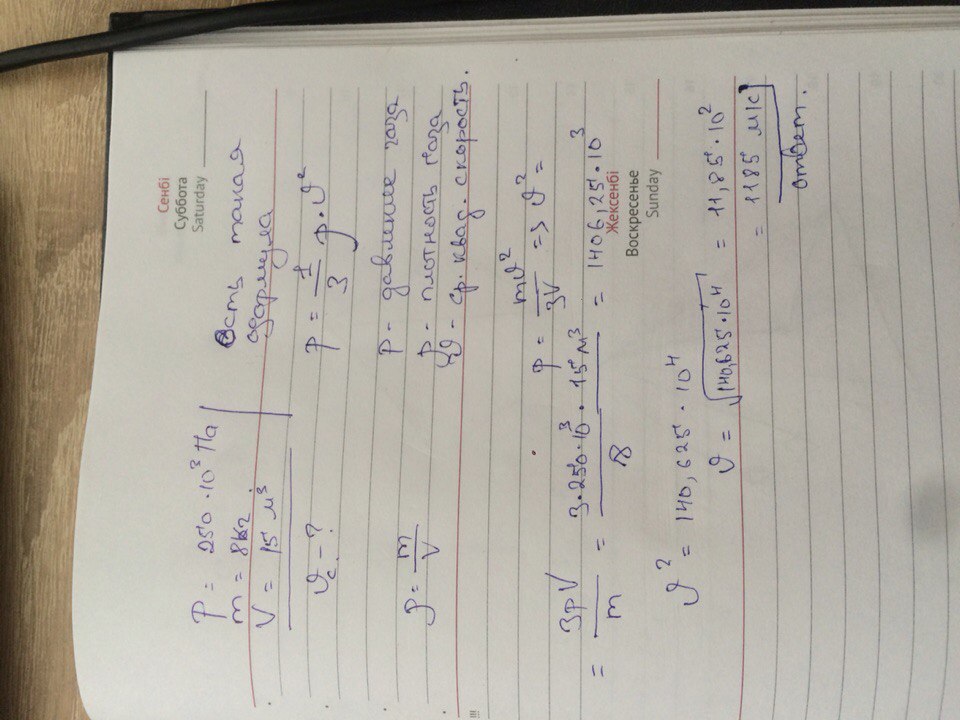 Сенбі
Суббота
Saturday
P = 250 · 10³ Па
m = 8 кг
V = 15 м³
Есть такая
формула
υc - ?
P = 1/3 ρ · υ²
P = давление газа
ρ = m/V
ρ = плотность газа
υ = ср. квад. скорость.
P = mυ²/3V => υ² =
= 3pV/m = 3·250·10³ · 15 м³/8 = 1406,25 · 10³
Жексенбі
Воскресенье
Sunday
υ² = 140,625 · 10⁴
υ = √140,625·10⁴ = 11,85 · 10²
= 1185 м/с
ответ.